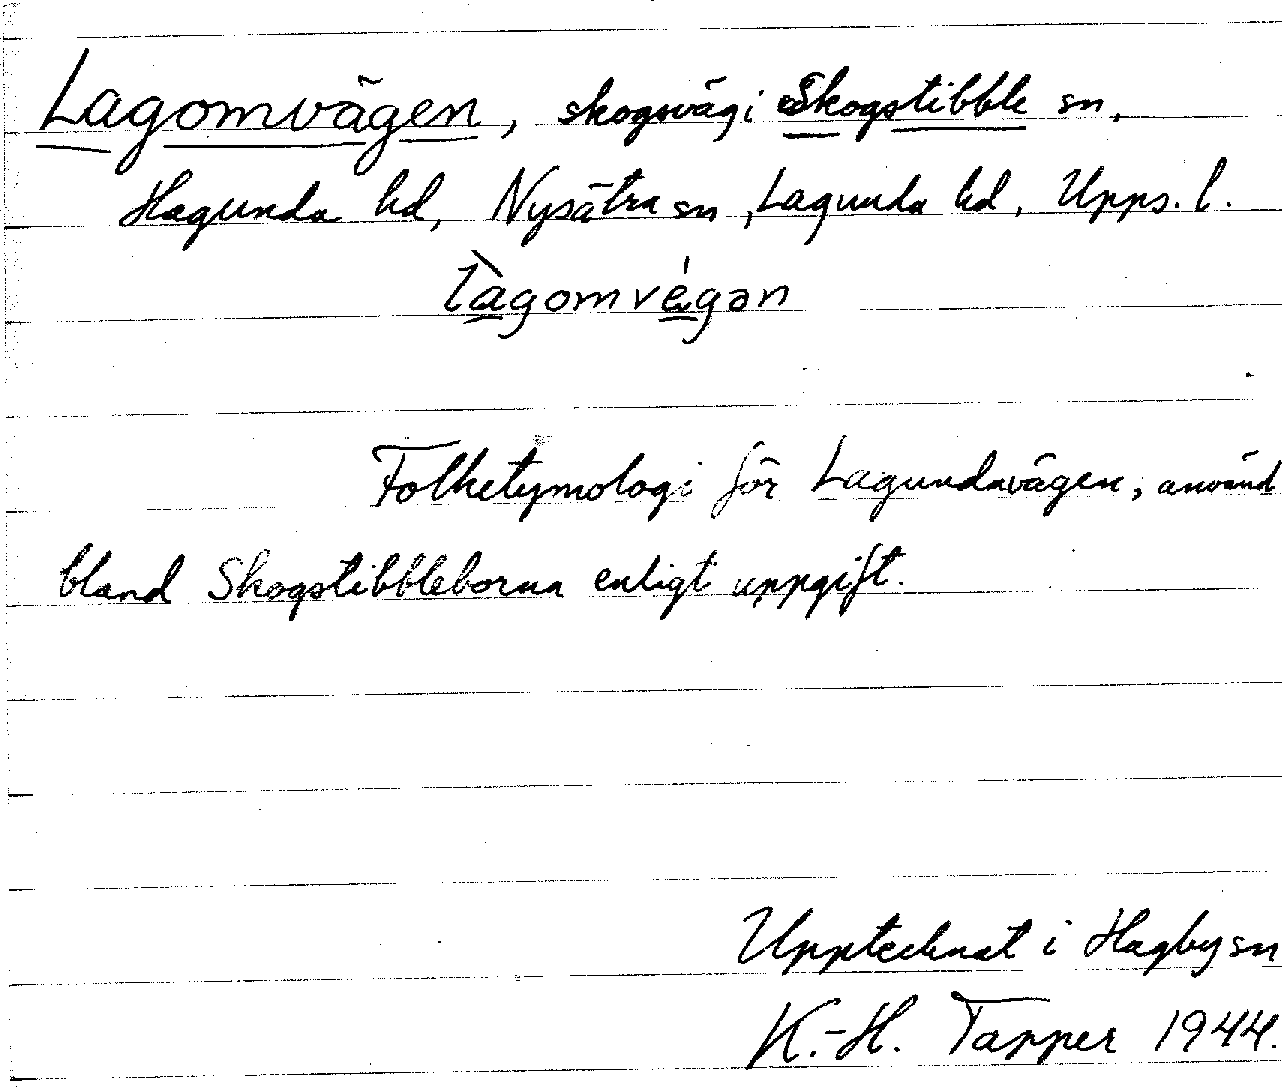 Lagomvägen, skogsväg i Skogstibble sn,
Hagunda hd, Nysätra sn, Lagunda hd, Upps. l.
làgomvégən
Folketymologi för Lagundavägen, använd
bland Skogstibbleborna enligt uppgift.
Upptecknat i Hagby sn
K.-H. Tapper 1944.